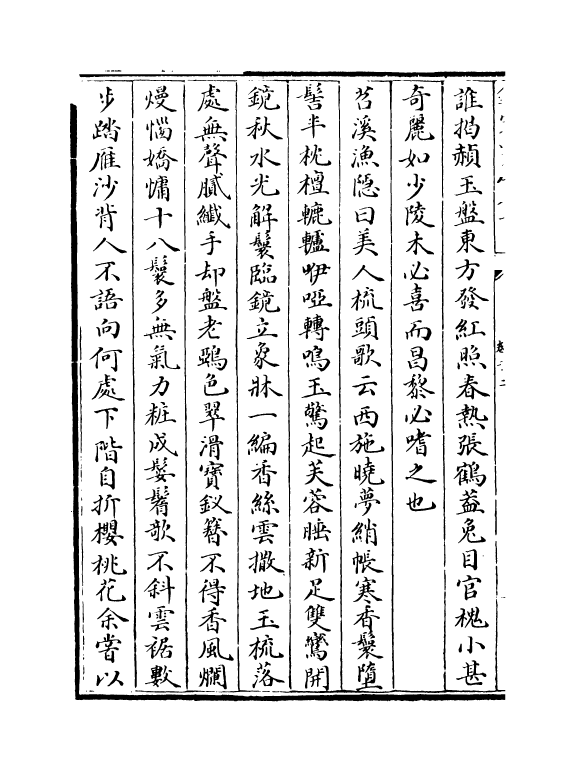 誰揭赬玉盤東方發紅照春熱張鶴蓋兔目官槐小甚
奇麗如少陵未必喜而昌黎必嗜之也
苕溪漁隱曰美人梳頭歌云西施曉夢綃帳寒香鬟墮
髻半枕檀轆轤咿啞轉鳴玉驚起芙蓉睡新足雙鸞開
鏡秋水光解鬟臨鏡立象牀一編香絲雲撒地玉梳落
處無聲膩纖手却盤老鵶色翠滑寶釵簪不得香風爛
熳惱嬌慵十八鬟多無氣力粧成鬖鬌欹不斜雲裾數
步踏雁沙背人不語向何處下階自折櫻桃花余嘗以